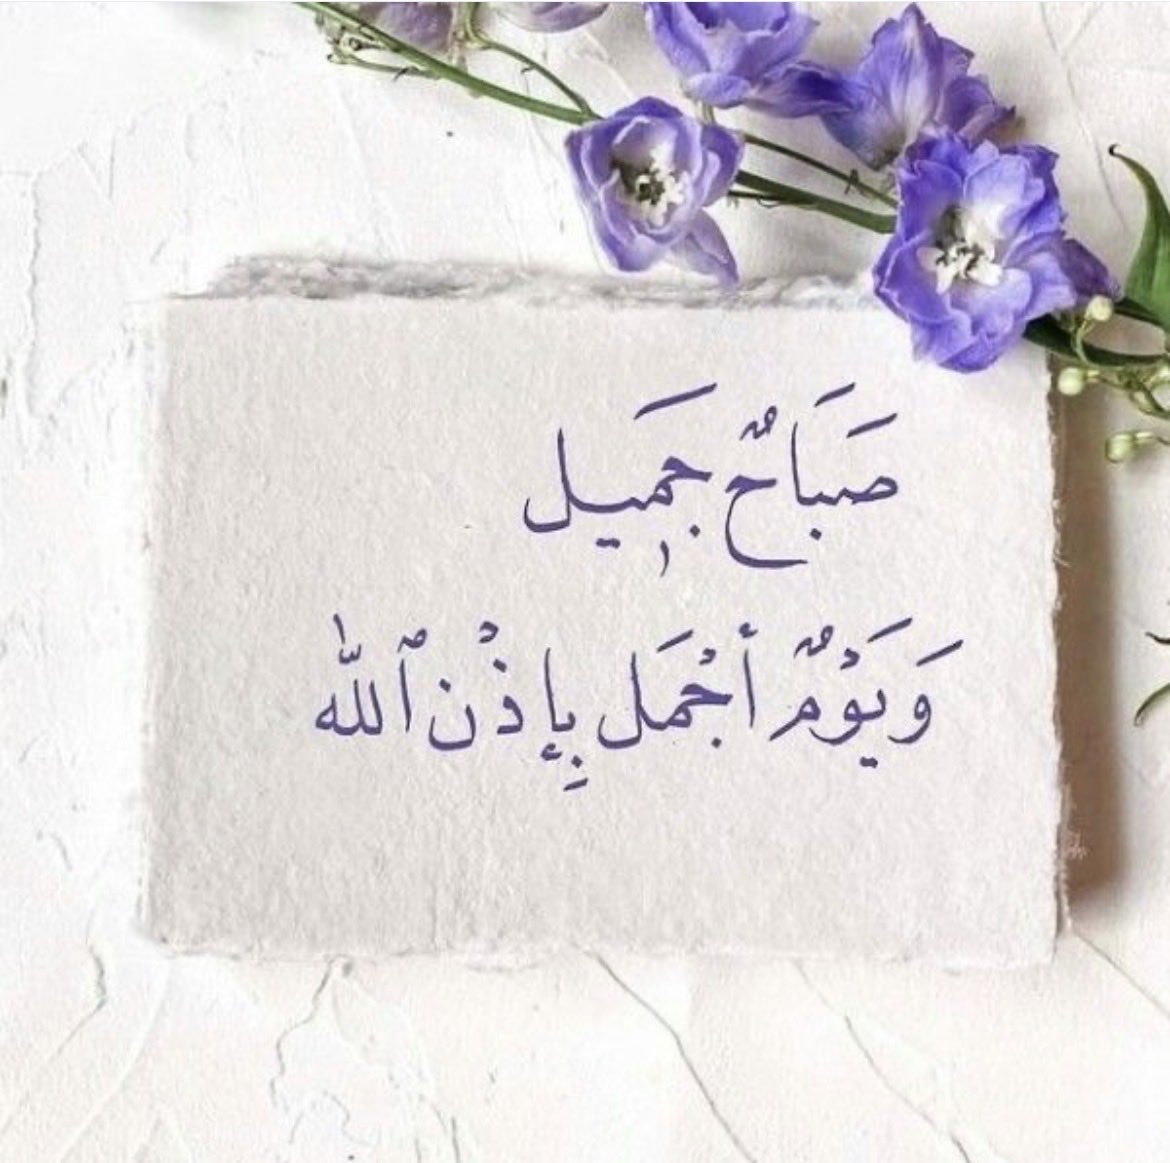 صَبَاحٌ جَمَيل
وَيَوْمٌ أجْمَل بِإذْن ٱللّٰه